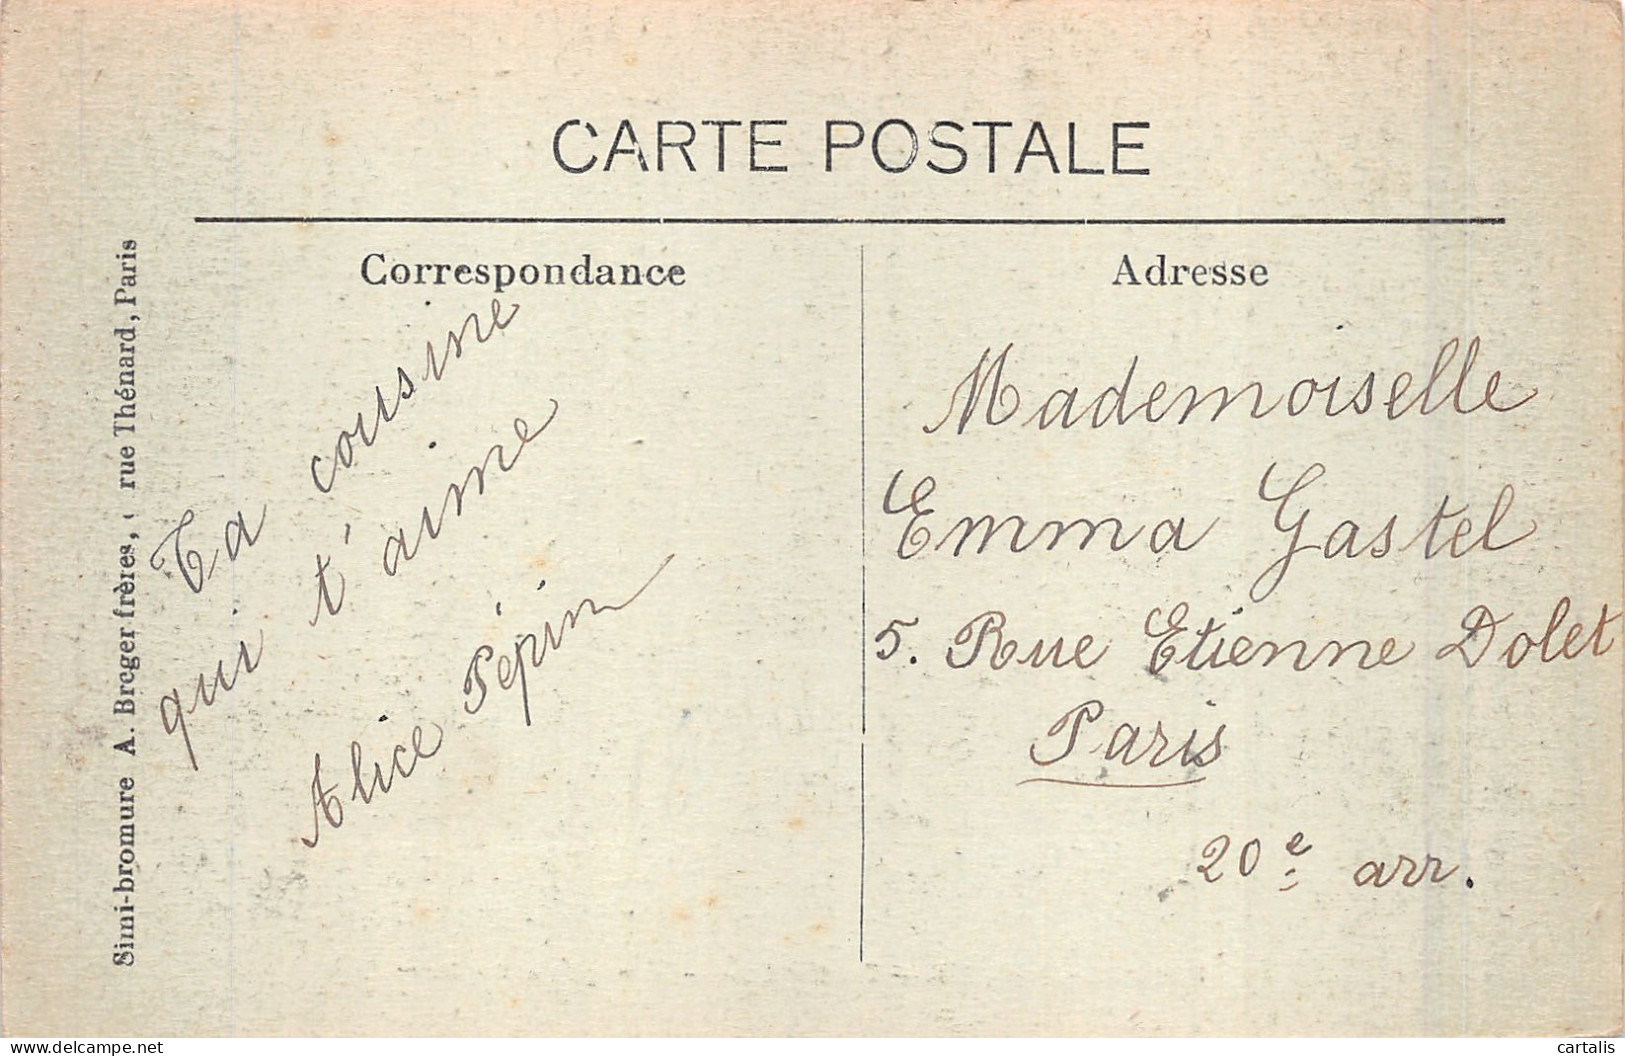 CARTE POSTALE
Correspondance
Ta cousine
qui t'aime
Alice Pépin
Adresse
Mademoiselle
Emma Gastel
5. Rue Etienne Dolet
Paris
20e arr.
Simi-bromure A. Breger frères, rue Thénard, Paris
www.delcampe.net
cartalis